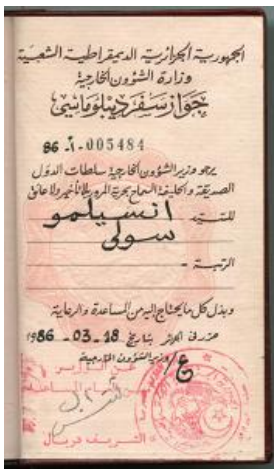 الجمهورية الجزائرية الديمقراطية الشعبية
وزارة الشؤون الخارجية
جواز سفر ديبلوماسي
86 -أ- 005484
يرجو وزير الشؤون الخارجية سلطات الدول
الصديقة والحليفة السماح بحرية المرور بلا تأخير ولا عائق
للسيد انسيلمو
سولي
الرتبة -
وبذل كل ما يحتاج إليه من المساعدة والرعاية
حرر في الجزائر بتاريخ 18 - 03 - 1986
ع/ وزير الشؤون الخارجية
عن الوزير
الشريف دربال